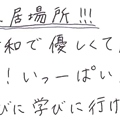 居場所!!!
和で優しくて
!いっーぱい
びに学びに行け